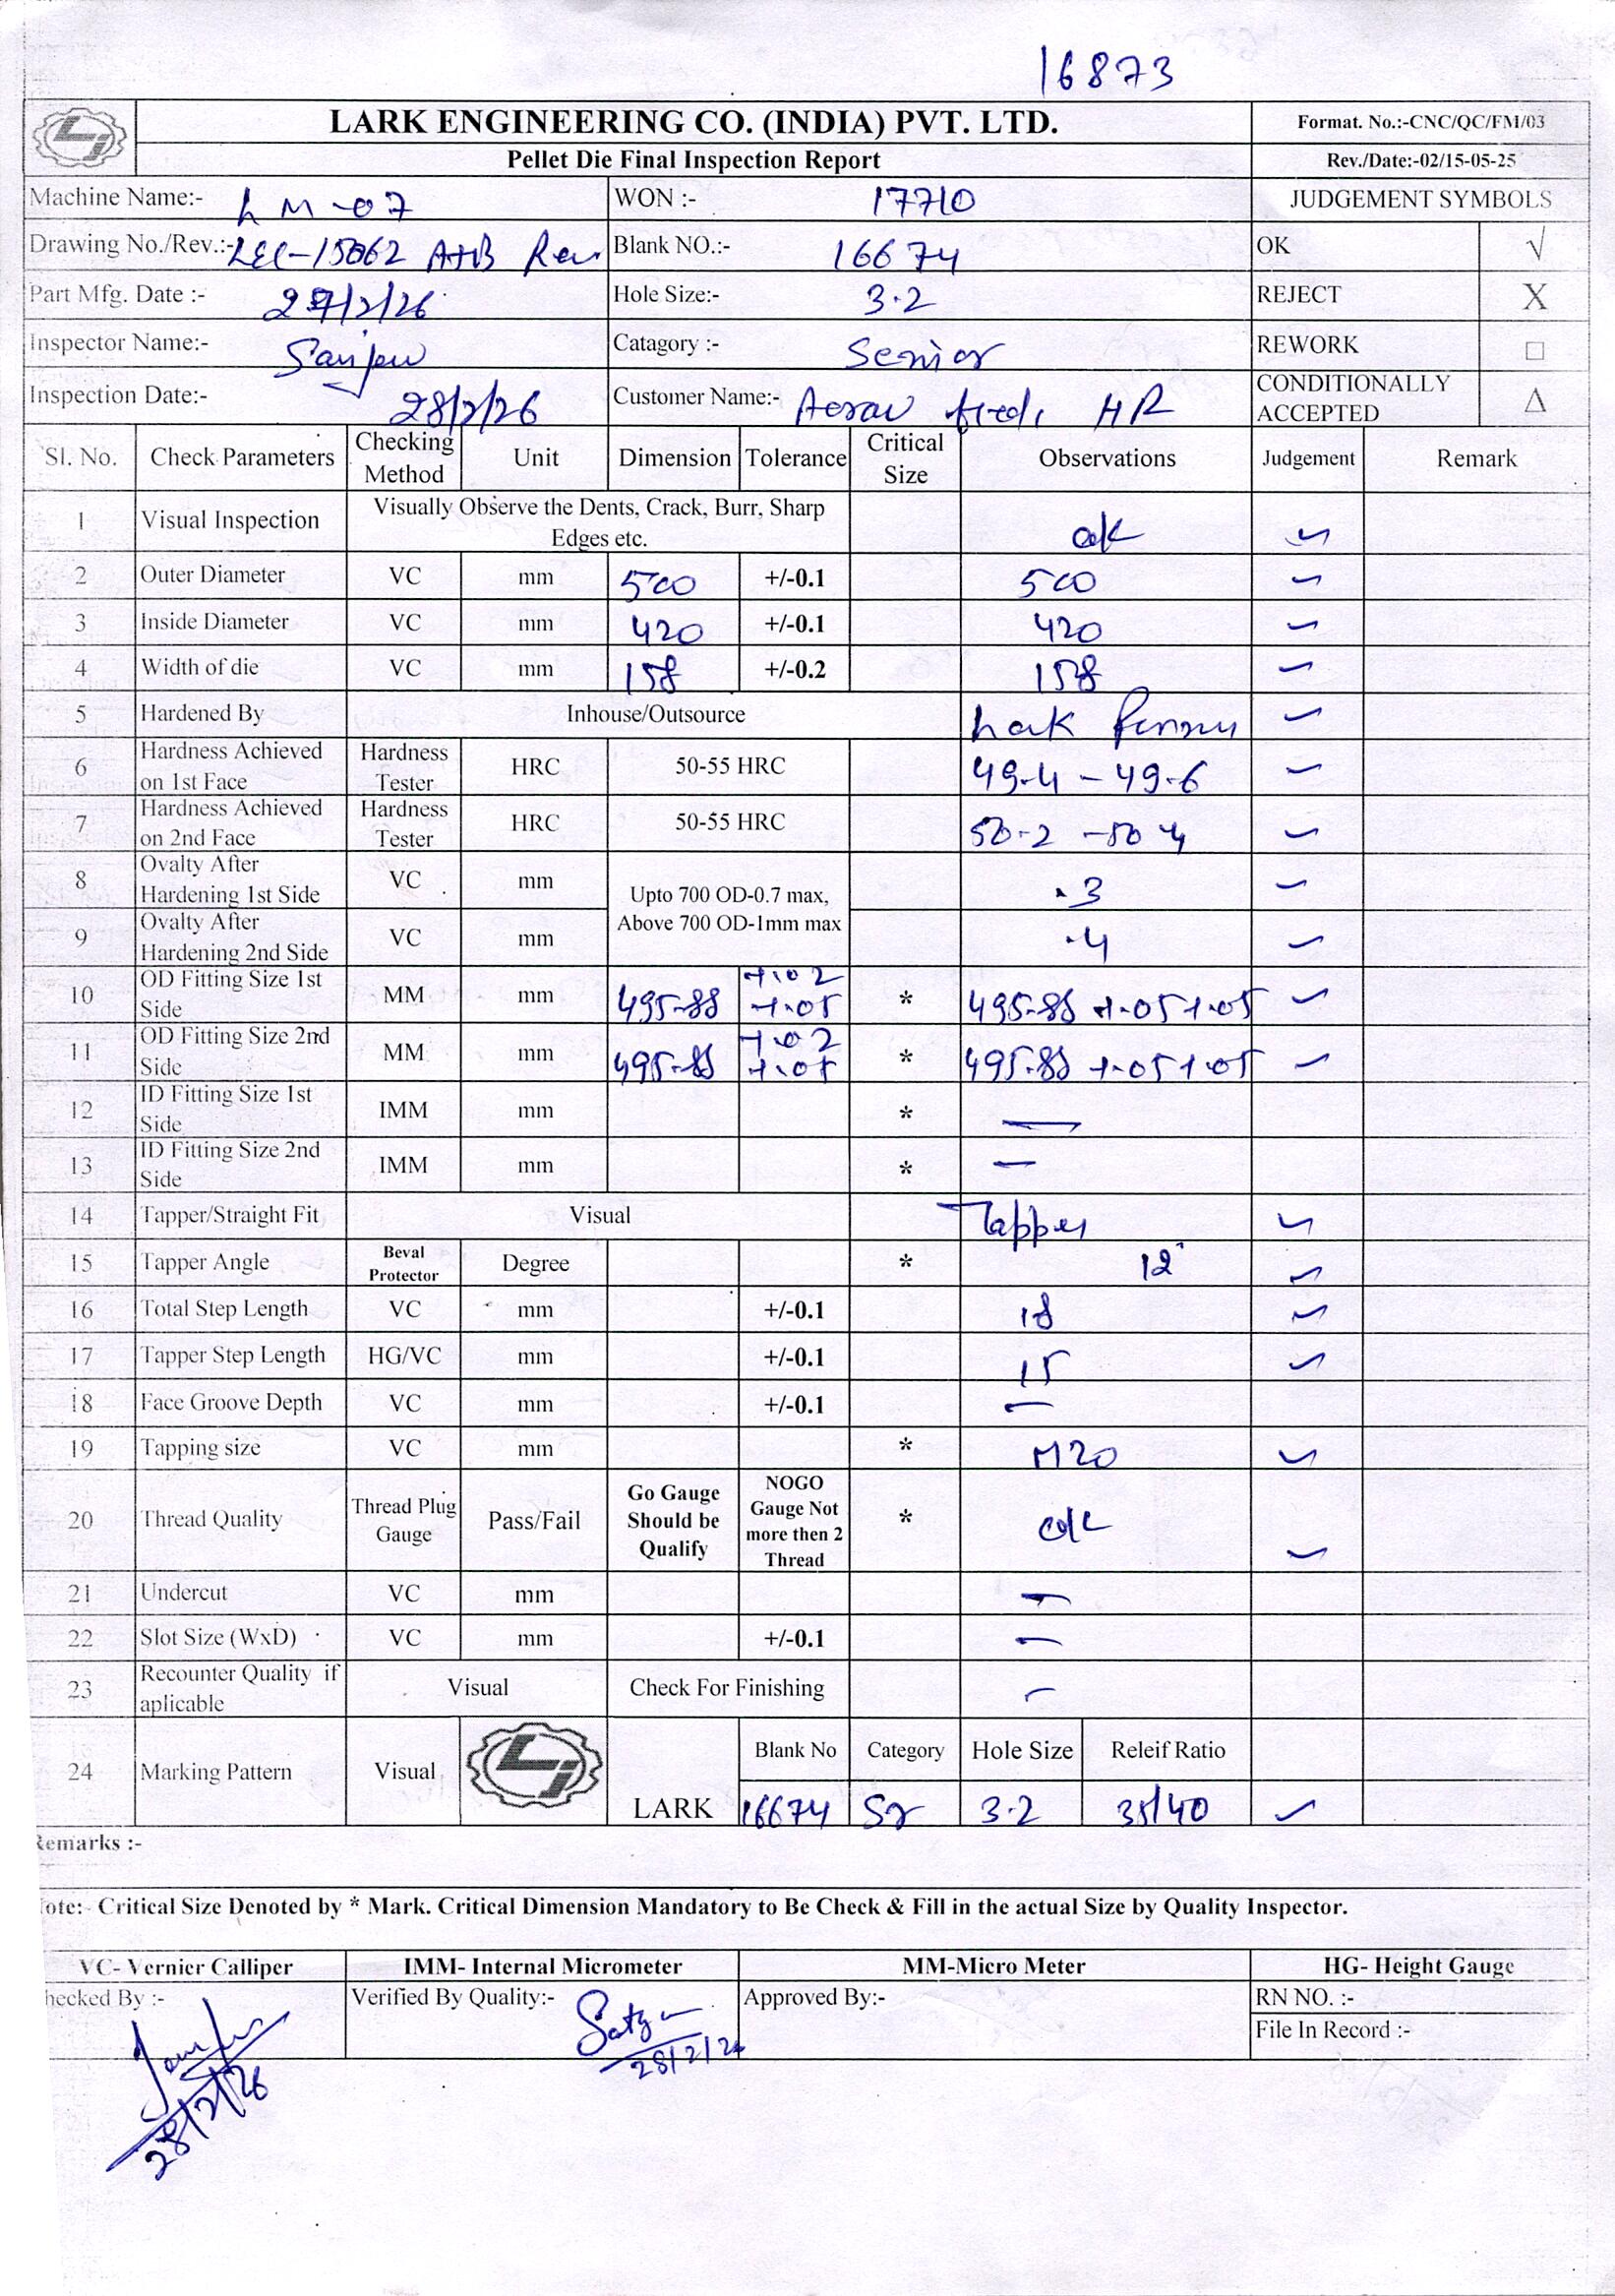 16873
LARK ENGINEERING CO. (INDIA) PVT. LTD.
Format. No.:-CNC/QC/FM/03
Pellet Die Final Inspection Report
Rev./Date:-02/15-05-25
Machine Name:- LM-07 WON :- 17710 JUDGEMENT SYMBOLS
Drawing No./Rev.:- LEC-15062 A+B Rev Blank NO.:- 16674 OK √
Part Mfg. Date :- 27/2/26 Hole Size:- 3.2 REJECT X
Inspector Name:- Sanjeev Catagory :- Senior REWORK □
Inspection Date:- 28/2/26 Customer Name:- HR CONDITIONALLY ACCEPTED Δ
Sl. No. Check Parameters Checking Method Unit Dimension Tolerance Critical Size Observations Judgement Remark
1 Visual Inspection Visually Observe the Dents, Crack, Burr, Sharp Edges etc. ok ✓
2 Outer Diameter VC mm 500 +/-0.1 500 ✓
3 Inside Diameter VC mm 420 +/-0.1 420 ✓
4 Width of die VC mm 158 +/-0.2 158 ✓
5 Hardened By Inhouse/Outsource ✓
6 Hardness Achieved on 1st Face Hardness Tester HRC 50-55 HRC 49.4 - 49.6 ✓
7 Hardness Achieved on 2nd Face Hardness Tester HRC 50-55 HRC 50.2 - 50.4 ✓
8 Ovalty After Hardening 1st Side VC mm Upto 700 OD-0.7 max, Above 700 OD-1mm max .3 ✓
9 Ovalty After Hardening 2nd Side VC mm .4 ✓
10 OD Fitting Size 1st Side MM mm 495.88 +.02 +.05 * 495.88 +.05 +.05 ✓
11 OD Fitting Size 2nd Side MM mm 495.88 +.02 +.05 * 495.88 +.05 +.05 ✓
12 ID Fitting Size 1st Side IMM mm * —
13 ID Fitting Size 2nd Side IMM mm * —
14 Tapper/Straight Fit Visual Tapper ✓
15 Tapper Angle Beval Protector Degree * 12° ✓
16 Total Step Length VC mm +/-0.1 18 ✓
17 Tapper Step Length HG/VC mm +/-0.1 15 ✓
18 Face Groove Depth VC mm +/-0.1 —
19 Tapping size VC mm * M20 ✓
20 Thread Quality Thread Plug Gauge Pass/Fail Go Gauge Should be Qualify NOGO Gauge Not more then 2 Thread * ok ✓
21 Undercut VC mm —
22 Slot Size (WxD) VC mm +/-0.1 —
23 Recounter Quality if aplicable Visual Check For Finishing —
24 Marking Pattern Visual LARK Blank No Category Hole Size Releif Ratio
16674 Sr 3.2 35/40 ✓
Remarks :-
ote:- Critical Size Denoted by * Mark. Critical Dimension Mandatory to Be Check & Fill in the actual Size by Quality Inspector.
VC- Vernier Calliper IMM- Internal Micrometer MM-Micro Meter HG- Height Gauge
hecked By :- 28/2/26 Verified By Quality:- 28/2/26 Approved By:- RN NO. :-
File In Record :-